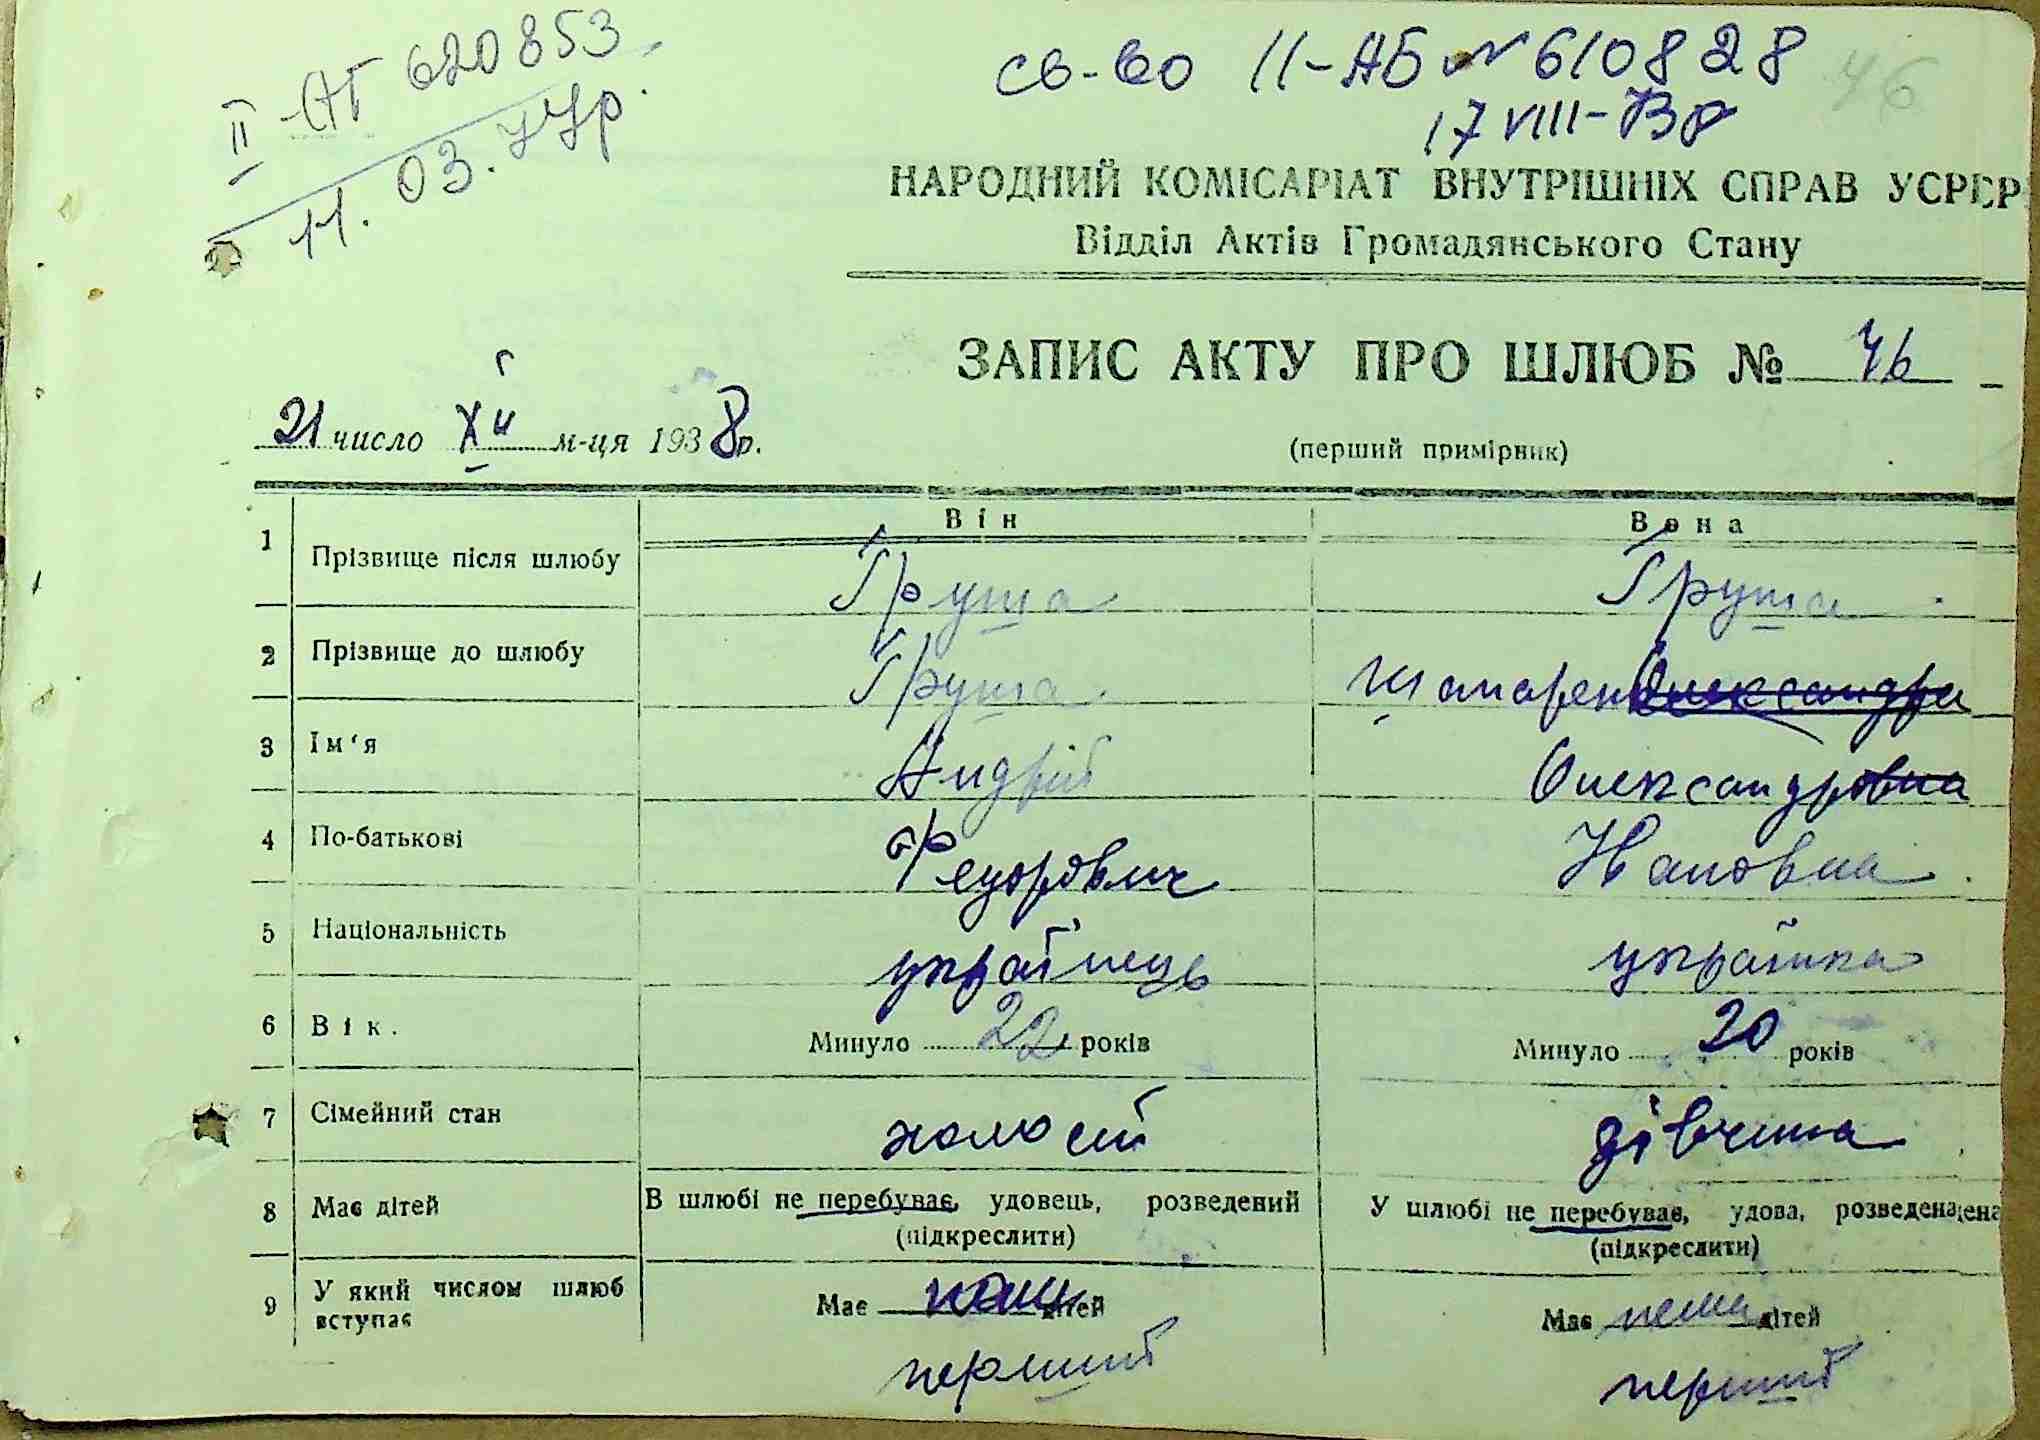 ІІ-АГ 620853
11.03.77р.
св-во ІІ-АБ № 610828
46
17 VIII-73р
НАРОДНИЙ КОМІСАРІАТ ВНУТРІШНІХ СПРАВ УСРР
Відділ Актів Громадянського Стану
ЗАПИС АКТУ ПРО ШЛЮБ № 46
21 число XII м-ця 1938р.
(перший примірник)
Він Вона
1 Прізвище після шлюбу Груша Груша
2 Прізвище до шлюбу Груша
3 Ім'я Андрій Олександровна
4 По-батькові Федорович
5 Національність українець українка
6 Вік. Минуло 22 років Минуло 20 років
7 Сімейний стан холостий дівчина
8 Має дітей В шлюбі не перебуває, удовець, розведений У шлюбі не перебуває, удова, розведена
(підкреслити) (підкреслити)
9 У який числом шлюб вступає Має дітей Має нема дітей
перший перший